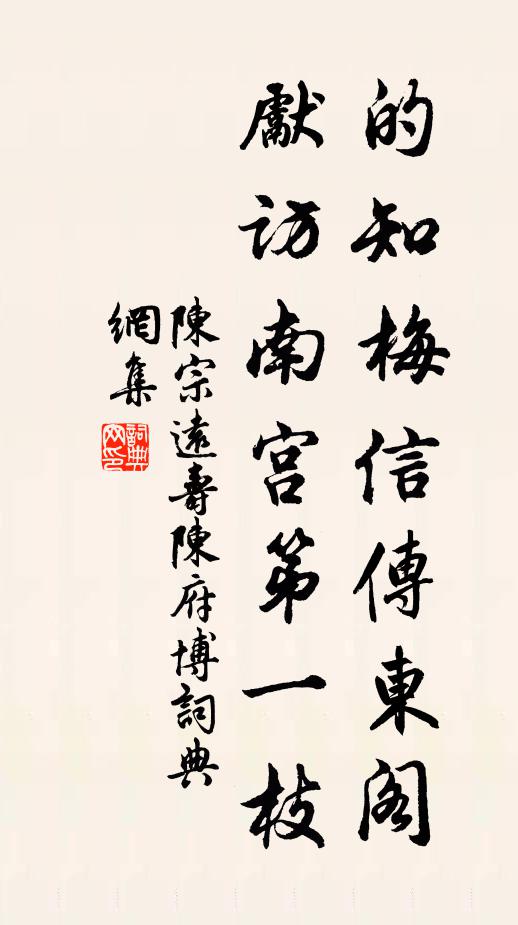 的知梅信傳東閣
獻訪南宮第一枝
陳宗遠壽陳府博詞典
網集
詞典